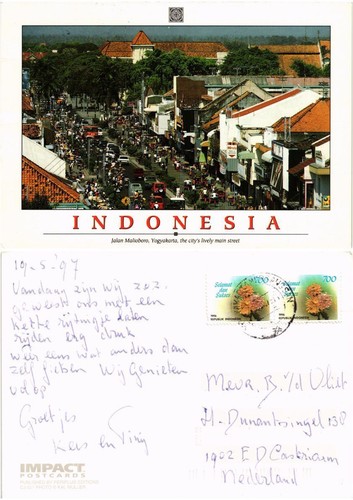 INDONESIA
Jalan Malioboro, Yogyakarta, the city's lively main street
19-5-'97
Vandaag zijn wij
geweest ons met een
rijden erg druk
weer eens wat anders dan
zelf fietsen Wij Genieten
volop
Groetjes
Kees en
700
Selamat
dan
Sukses
1996
REPUBLIK INDONESIA
700
Selamat
dan
Sukses
1996
REPUBLIK INDONESIA
Mevr. B. v/d Vliet
H. Dunantsingel 138
1902 ED Castricum
Nederland
IMPACT
POSTCARDS